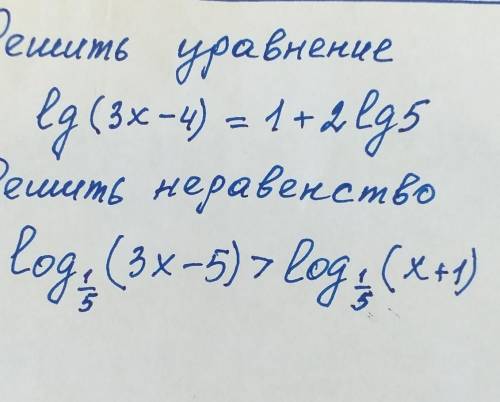 Решить уравнение
lg(3x-4) = 1+2lg5
Решить неравенство
log_{1/5}(3x-5) > log_{1/5}(x+1)